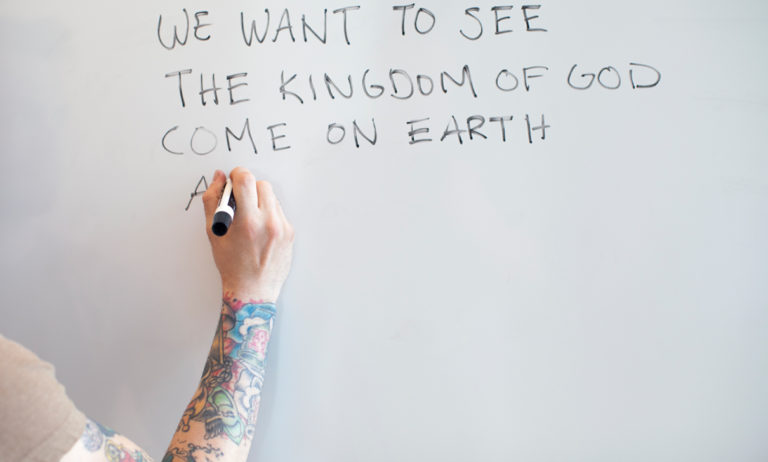 WE WANT TO SEE
THE KINGDOM OF GOD
COME ON EARTH
A